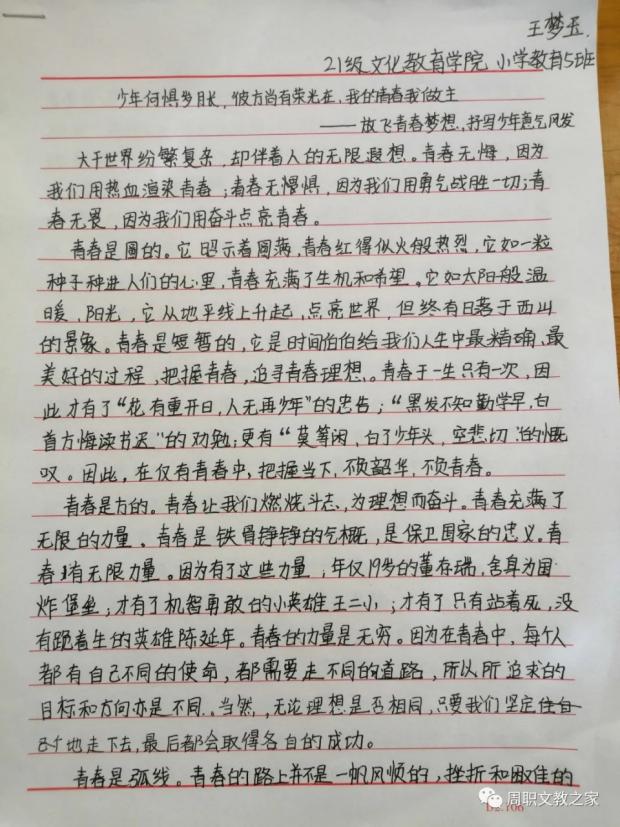 王梦玉.
21级文化教育学院 小学教育5班
少年何惧岁月长,彼方尚有荣光在,我的青春我做主
——放飞青春梦想,抒写少年意气风发
大千世界纷繁复杂,却伴着人的无限遐想。青春无悔,因为
我们用热血渲染青春;青春无惧,因为我们用勇气战胜一切;青
春无畏,因为我们用奋斗点亮青春。
青春是圆的。它昭示着圆满,青春红得似火般热烈,它如一粒
种子种进人们的心里,青春充满了生机和希望。它如太阳般温
暖、阳光,它从地平线上升起,点亮世界,但终有日落于西山
的景象。青春是短暂的,它是时间伯伯给我们人生中最精确、最
美好的过程,把握青春,追寻青春理想。青春于一生只有一次,因
此才有了“花有重开日,人无再少年”的忠告;“黑发不知勤学早,白
首方悔读书迟”的劝勉;更有“莫等闲,白了少年头,空悲切”的慨
叹。因此,在仅有青春中,把握当下,不负韶华,不负青春。
青春是方的。青春让我们燃烧斗志,为理想而奋斗。青春充满了
无限的力量、青春是铁骨铮铮的气概,是保卫国家的忠义。青
春有无限力量。因为有了这些力量,年仅19岁的董存瑞,舍身为国
炸堡垒;才有了机智勇敢的小英雄王二小;才有了只有站着死,没
有跪着生的英雄陈延年。青春的力量是无穷。因为在青春中,每个人
都有自己不同的使命,都需要走不同的道路,所以所追求的
目标和方向亦是不同。当然,无论理想是否相同,只要我们坚定
地走下去,最后都会取得各自的成功。
青春是弧线。青春的路上并不是一帆风顺的,挫折和困难的
周职文教之家